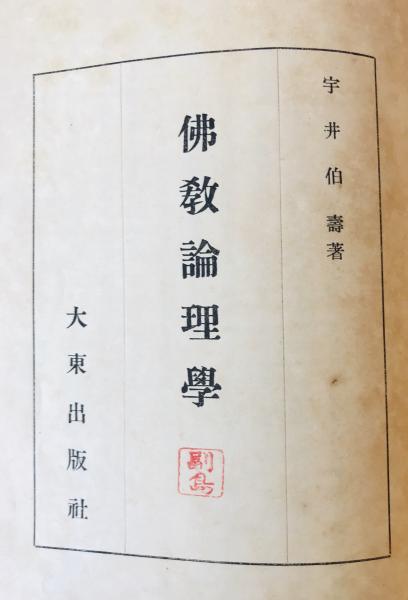 宇井伯壽著
佛教論理學
副島
大東出版社